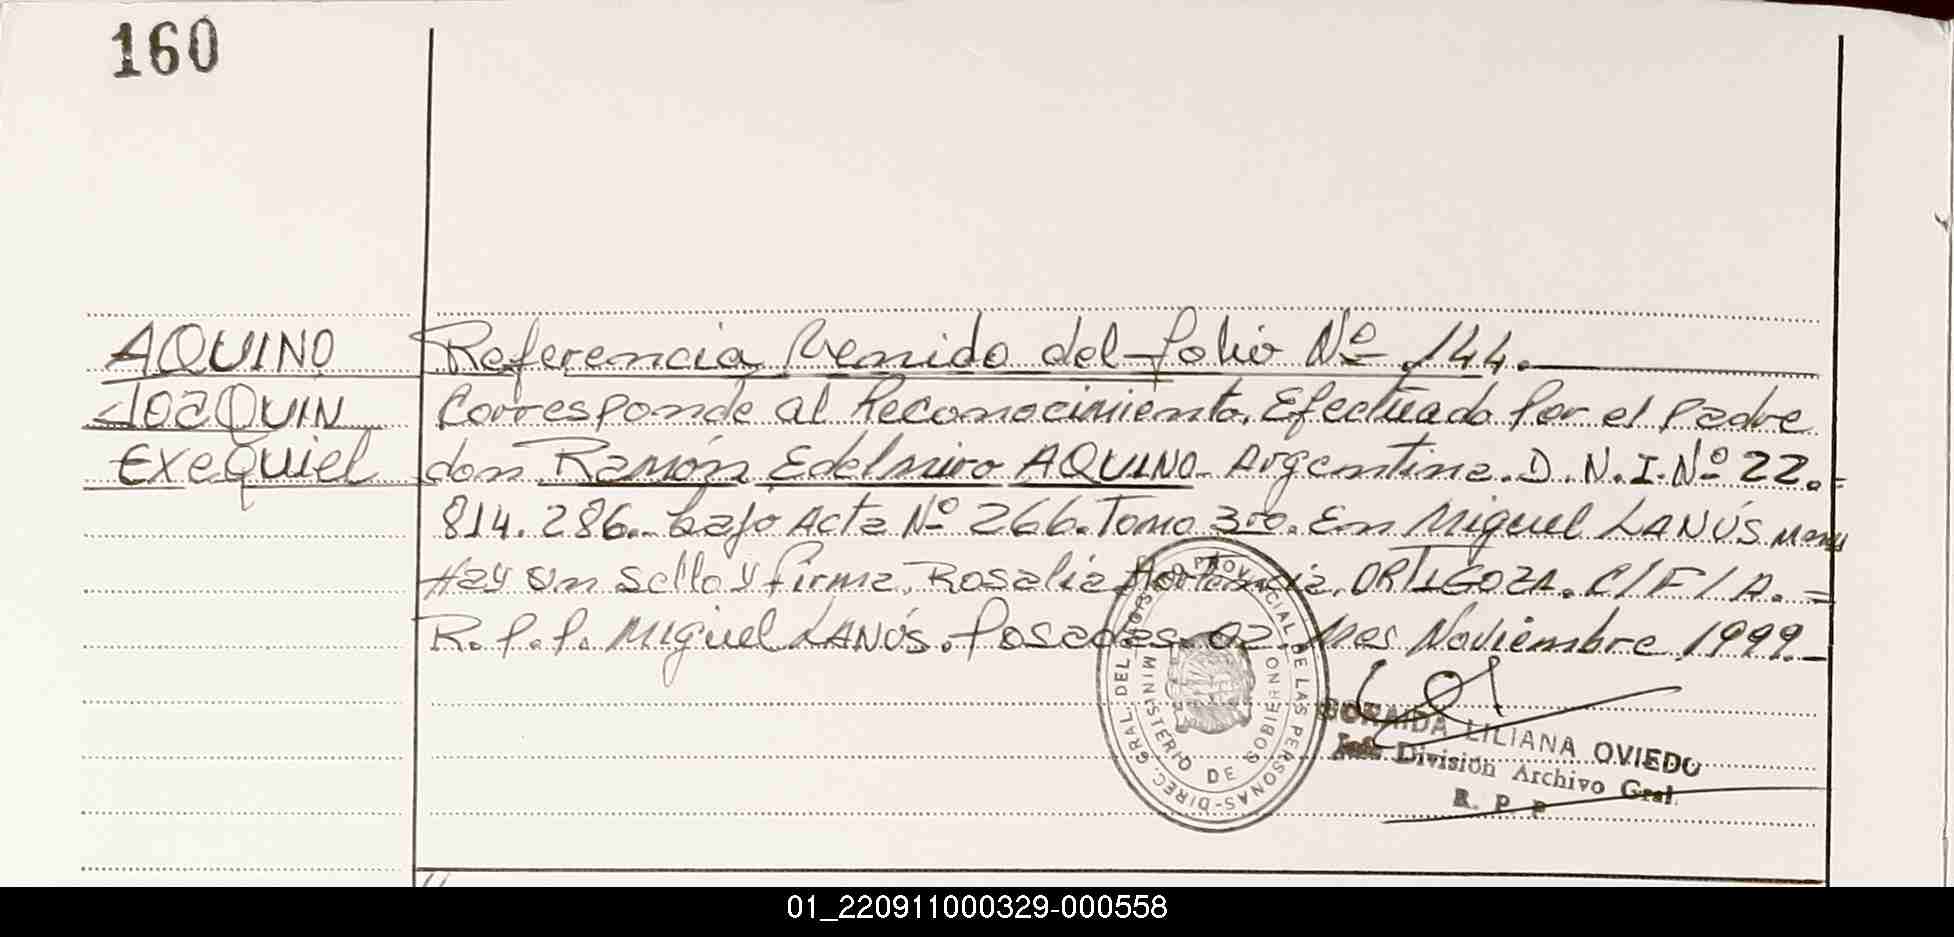 160
AQUINO
JOAQUIN
Exequiel
Referencia Venido del folio Nº 144.
Corresponde al Reconocimiento. Efectuado por el padre
don Ramón Edelmiro AQUINO Argentina. D.N.I. Nº 22.=
814.286.- bajo Acta Nº 266. Tomo 3ro. En Miguel LANÚS
Hay un sello y firma. Rosalia Hortencia ORTIGOZA. C/F/A. =
R.P.P. Miguel LANÚS. Posadas. 02. Mes Noviembre 1999.-
DIREC. GRAL. DEL REGISTRO PROVINCIAL DE LAS PERSONAS
MINISTERIO DE GOBIERNO
LILIANA OVIEDO
Jefe División Archivo Gral.
R. P. P.
01_220911000329-000558